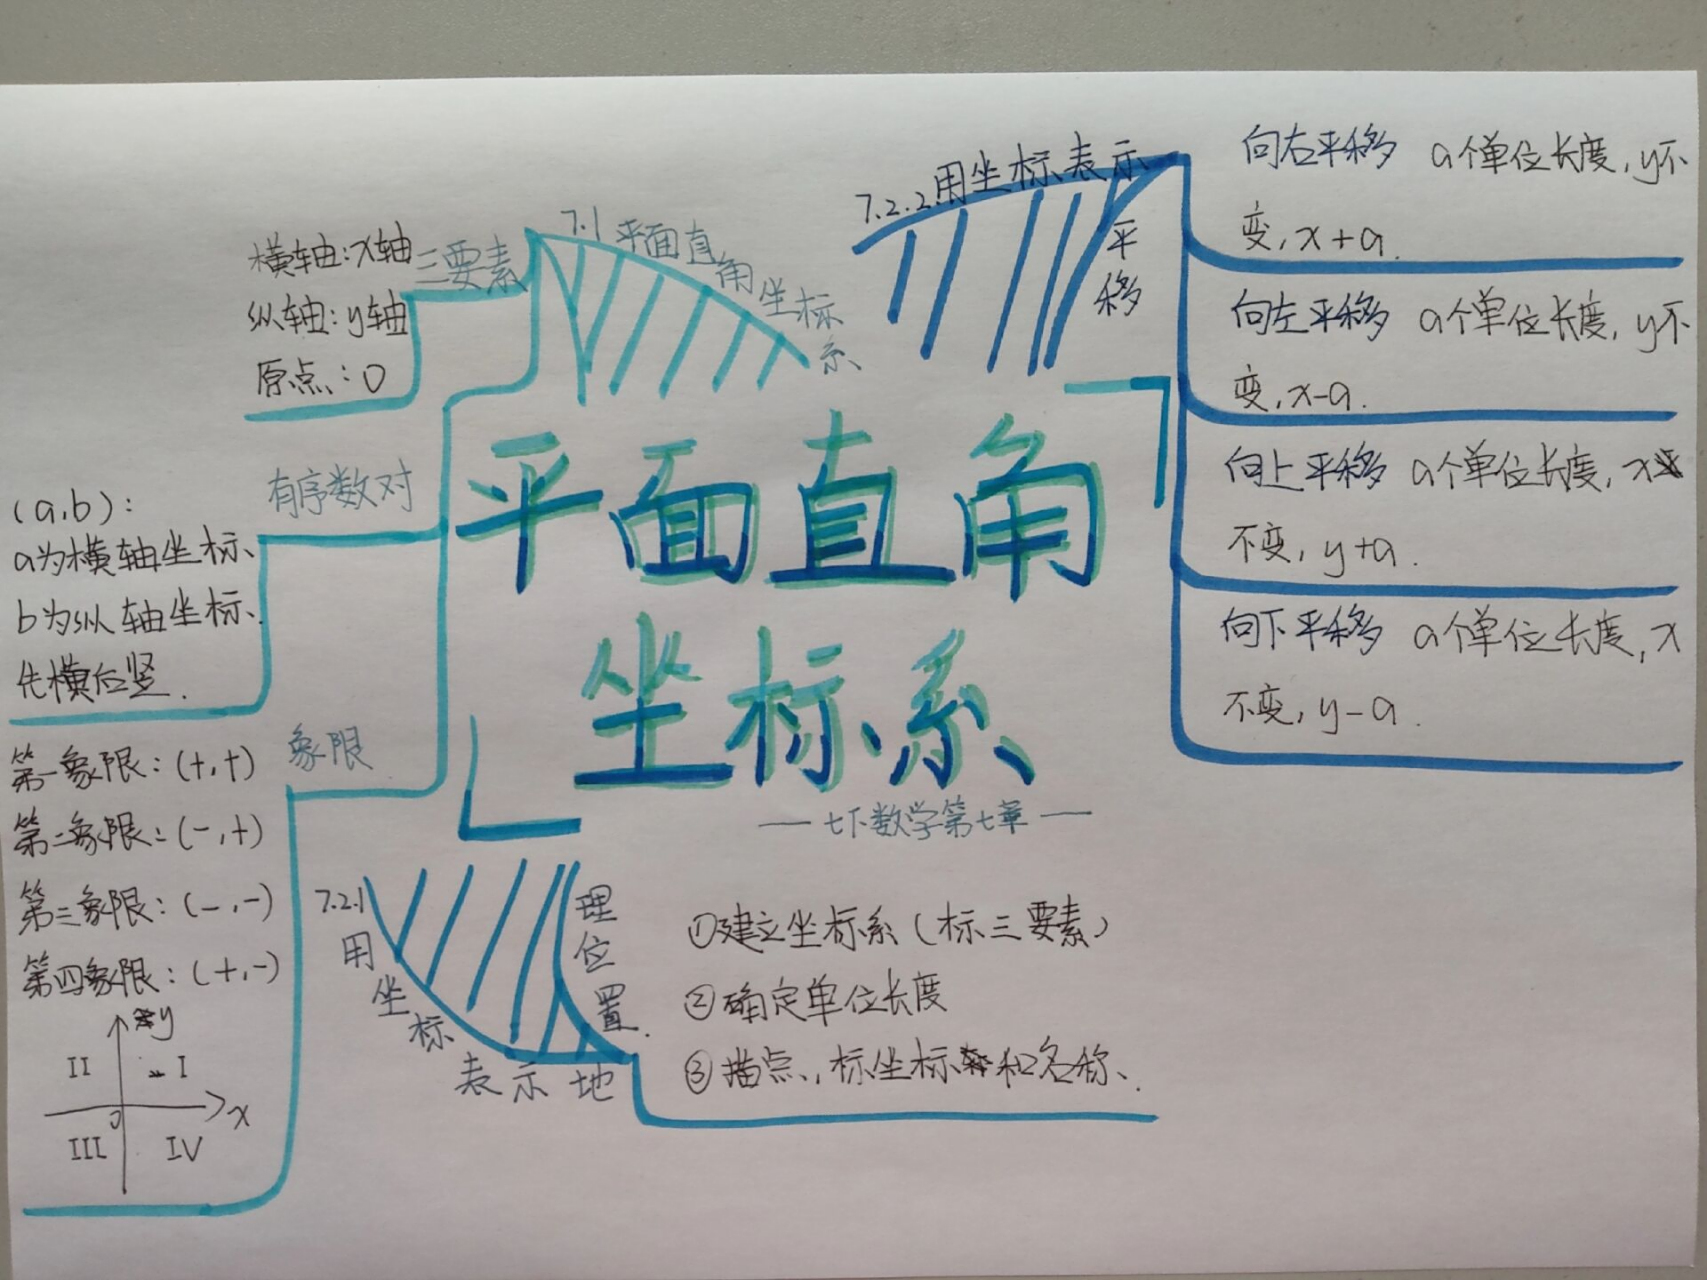 平面直角
坐标系
—七下数学第七章—
7.1 平面直角坐标系
三要素
横轴:x轴
纵轴:y轴
原点:0
有序数对
(a,b):
a为横轴坐标、
b为纵轴坐标.
先横后竖.
象限
第一象限:(+,+)
第二象限:(-,+)
第三象限:(-,-)
第四象限:(+,-)
y
II I
0 x
III IV
7.2.1 用坐标表示地理位置.
①建立坐标系(标三要素)
②确定单位长度
③描点,标坐标和名称.
7.2.2 用坐标表示平移
向右平移 a个单位长度,y不
变,x+a.
向左平移 a个单位长度,y不
变,x-a.
向上平移 a个单位长度,x
不变,y+a.
向下平移 a个单位长度,x
不变,y-a.